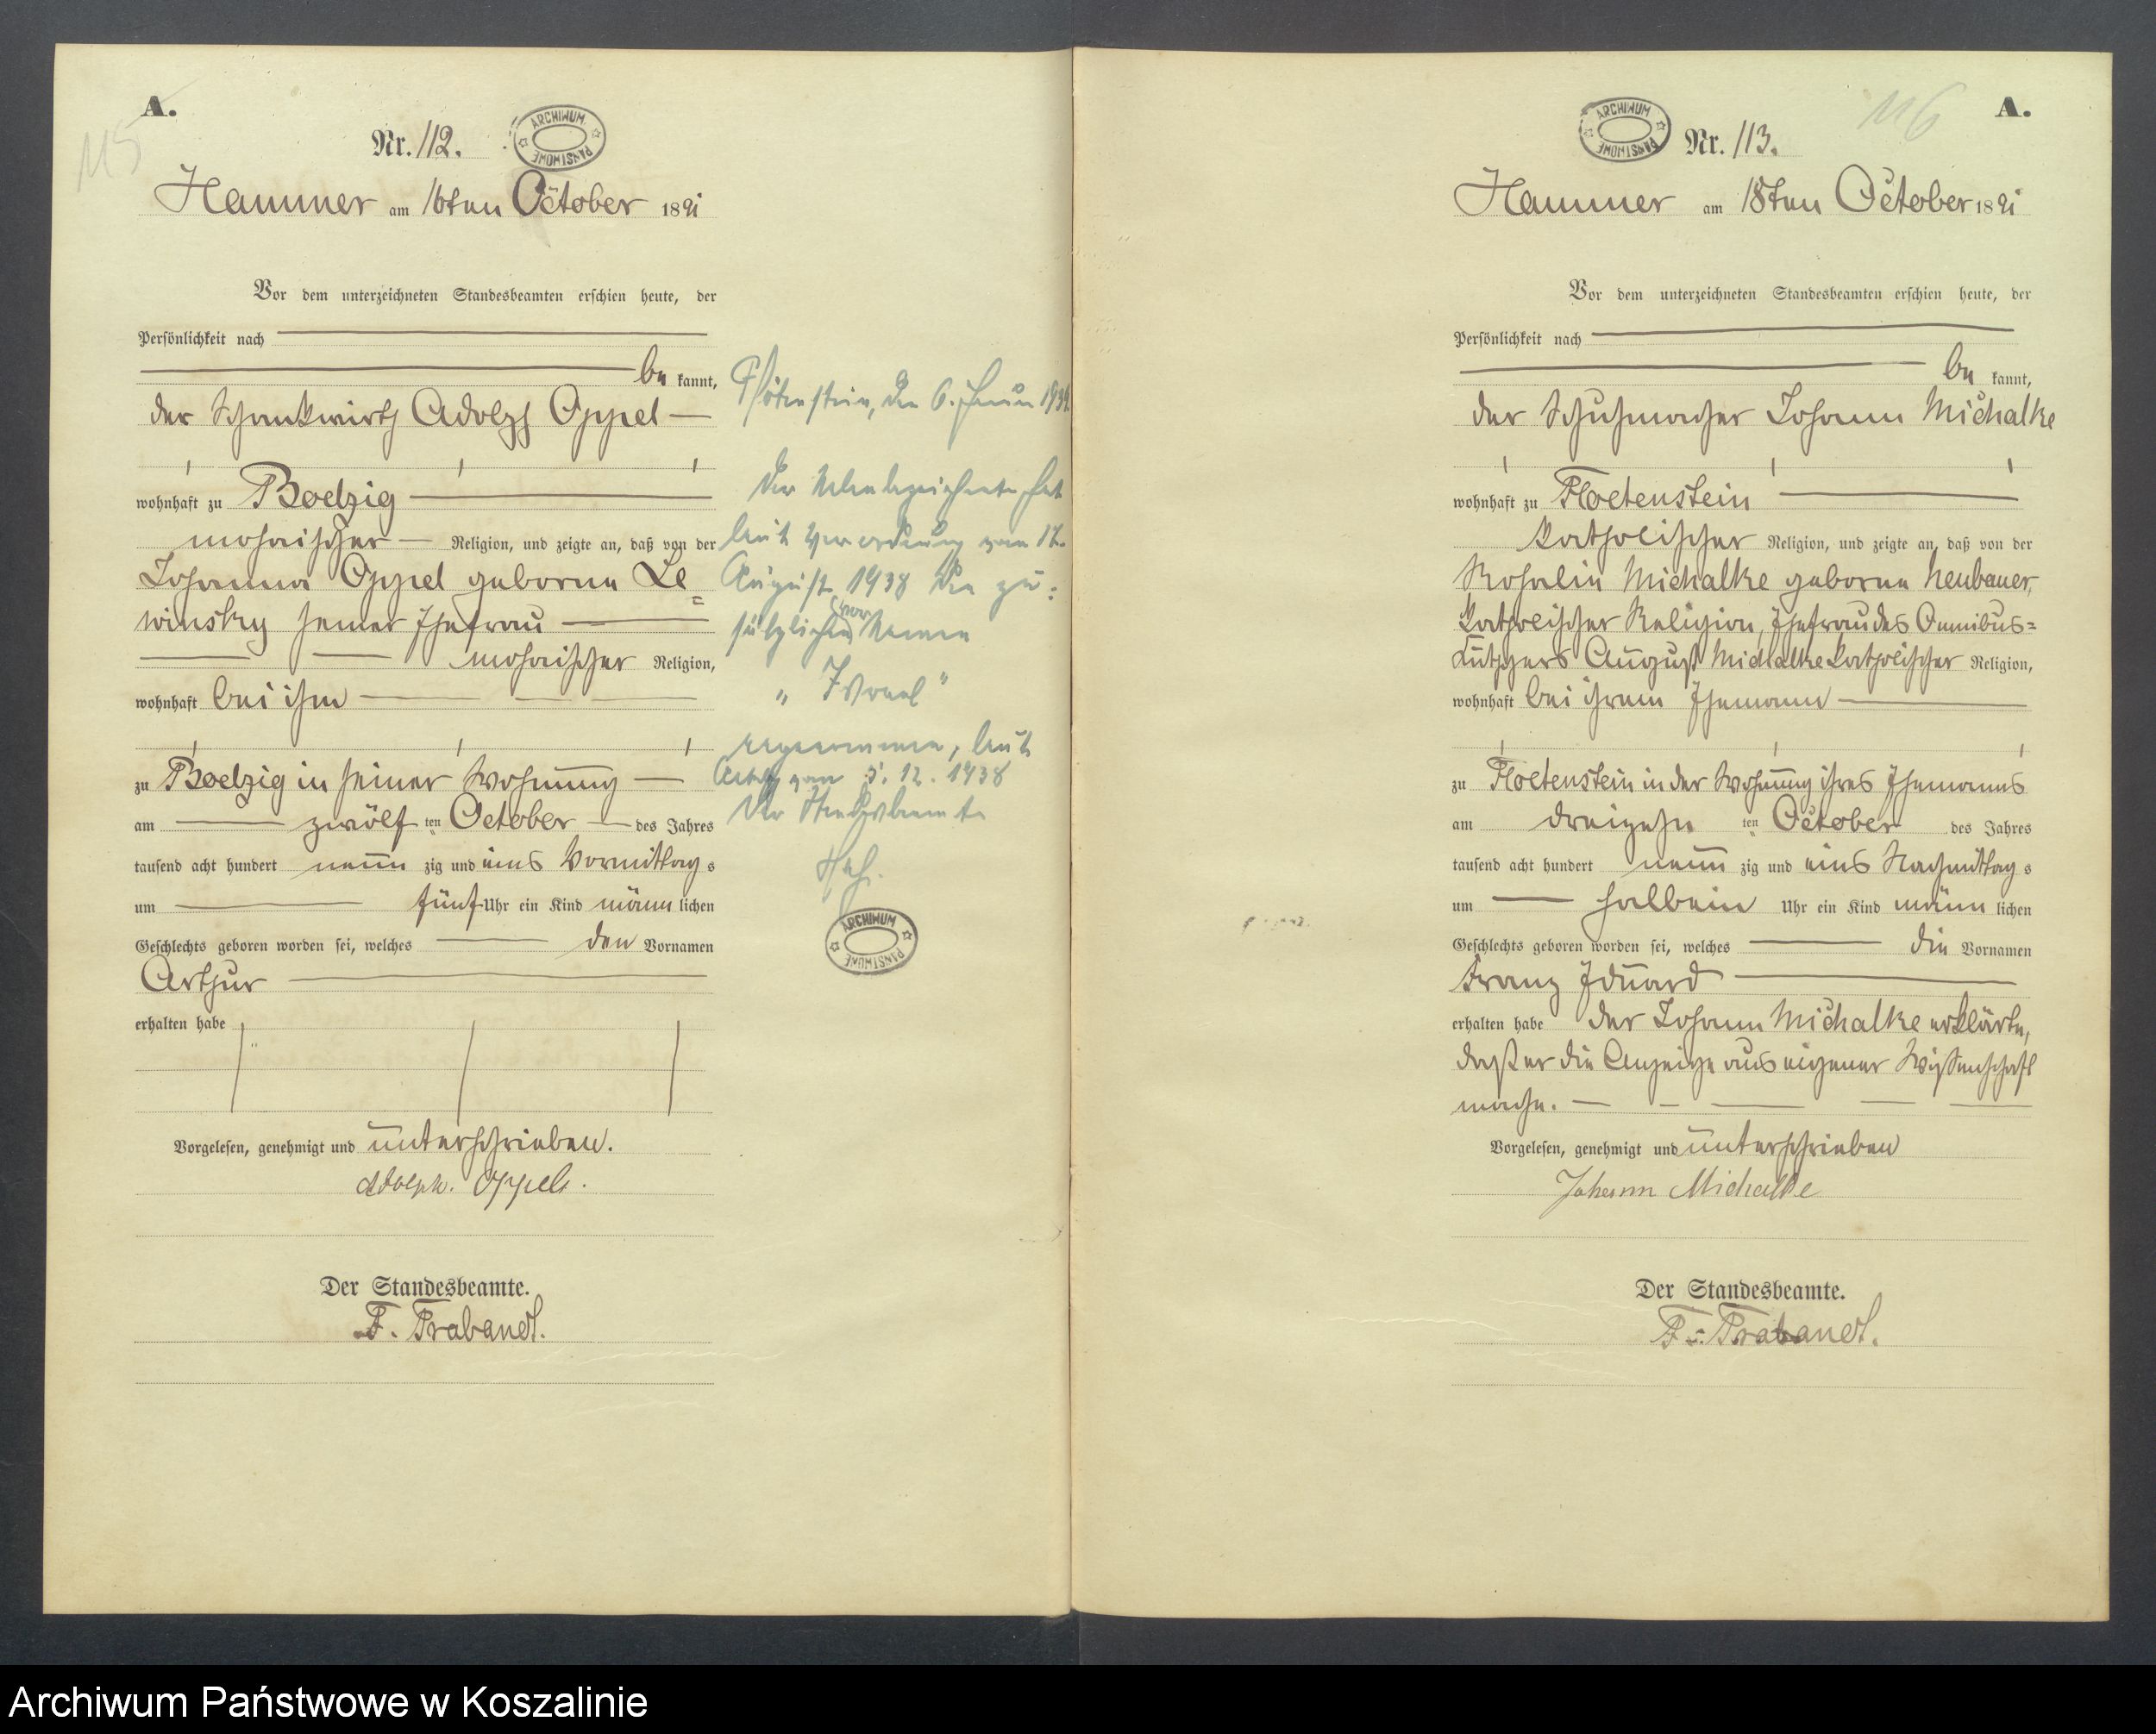 A.
115
Nr. 112.
ARCHIWUM PAŃSTWOWE
Hammer am 16ten October 1891
Vor dem unterzeichneten Standesbeamten erschien heute, der
Persönlichkeit nach
be kannt,
der Schankwirth Adolph Oppel
wohnhaft zu Boelzig
mosaischer Religion, und zeigte an, daß von der
Johanna Oppel geborne Le=
winsky seiner Ehefrau
mosaischer Religion,
wohnhaft bei ihm
zu Boelzig in seiner Wohnung
am zwölf ten October des Jahres
tausend acht hundert neun zig und eins Vormittag s
um fünf Uhr ein Kind männ lichen
Geschlechts geboren worden sei, welches den Vornamen
Arthur
erhalten habe
Vorgelesen, genehmigt und unterschrieben.
Adolph. Oppel.
Der Standesbeamte.
F. Trabandt.
Flötenstein, den 6. Januar 1939
Der Nebenbezeichnete hat
laut Verordnung vom 17.
August 1938 den zu=
sätzlichen Vornamen
"Israel"
angenommen, laut
vom 5. 12. 1938
Der Standesbeamte
ARCHIWUM PAŃSTWOWE
116
A.
ARCHIWUM PAŃSTWOWE
Nr. 113.
Hammer am 18ten October 1891
Vor dem unterzeichneten Standesbeamten erschien heute, der
Persönlichkeit nach
be kannt,
der Schuhmacher Johann Michalke
wohnhaft zu Floetenstein
katholischer Religion, und zeigte an, daß von der
Rosalie Michalke geborne Neubauer,
katholischer Religion, Ehefrau des Omnibus=
kutschers August Michalke katholischer Religion,
wohnhaft bei ihrem Ehemann
zu Floetenstein in der Wohnung ihres Ehemanns
am dreizehn ten October des Jahres
tausend acht hundert neun zig und eins Nachmittag s
um halb ein Uhr ein Kind männ lichen
Geschlechts geboren worden sei, welches die Vornamen
Franz Eduard
erhalten habe der Johann Michalke erklärte,
daß er die Anzeige aus eigener Wissenschaft
mache.
Vorgelesen, genehmigt und unterschrieben
Johann Michalke
Der Standesbeamte.
F. Trabandt.
Archiwum Państwowe w Koszalinie